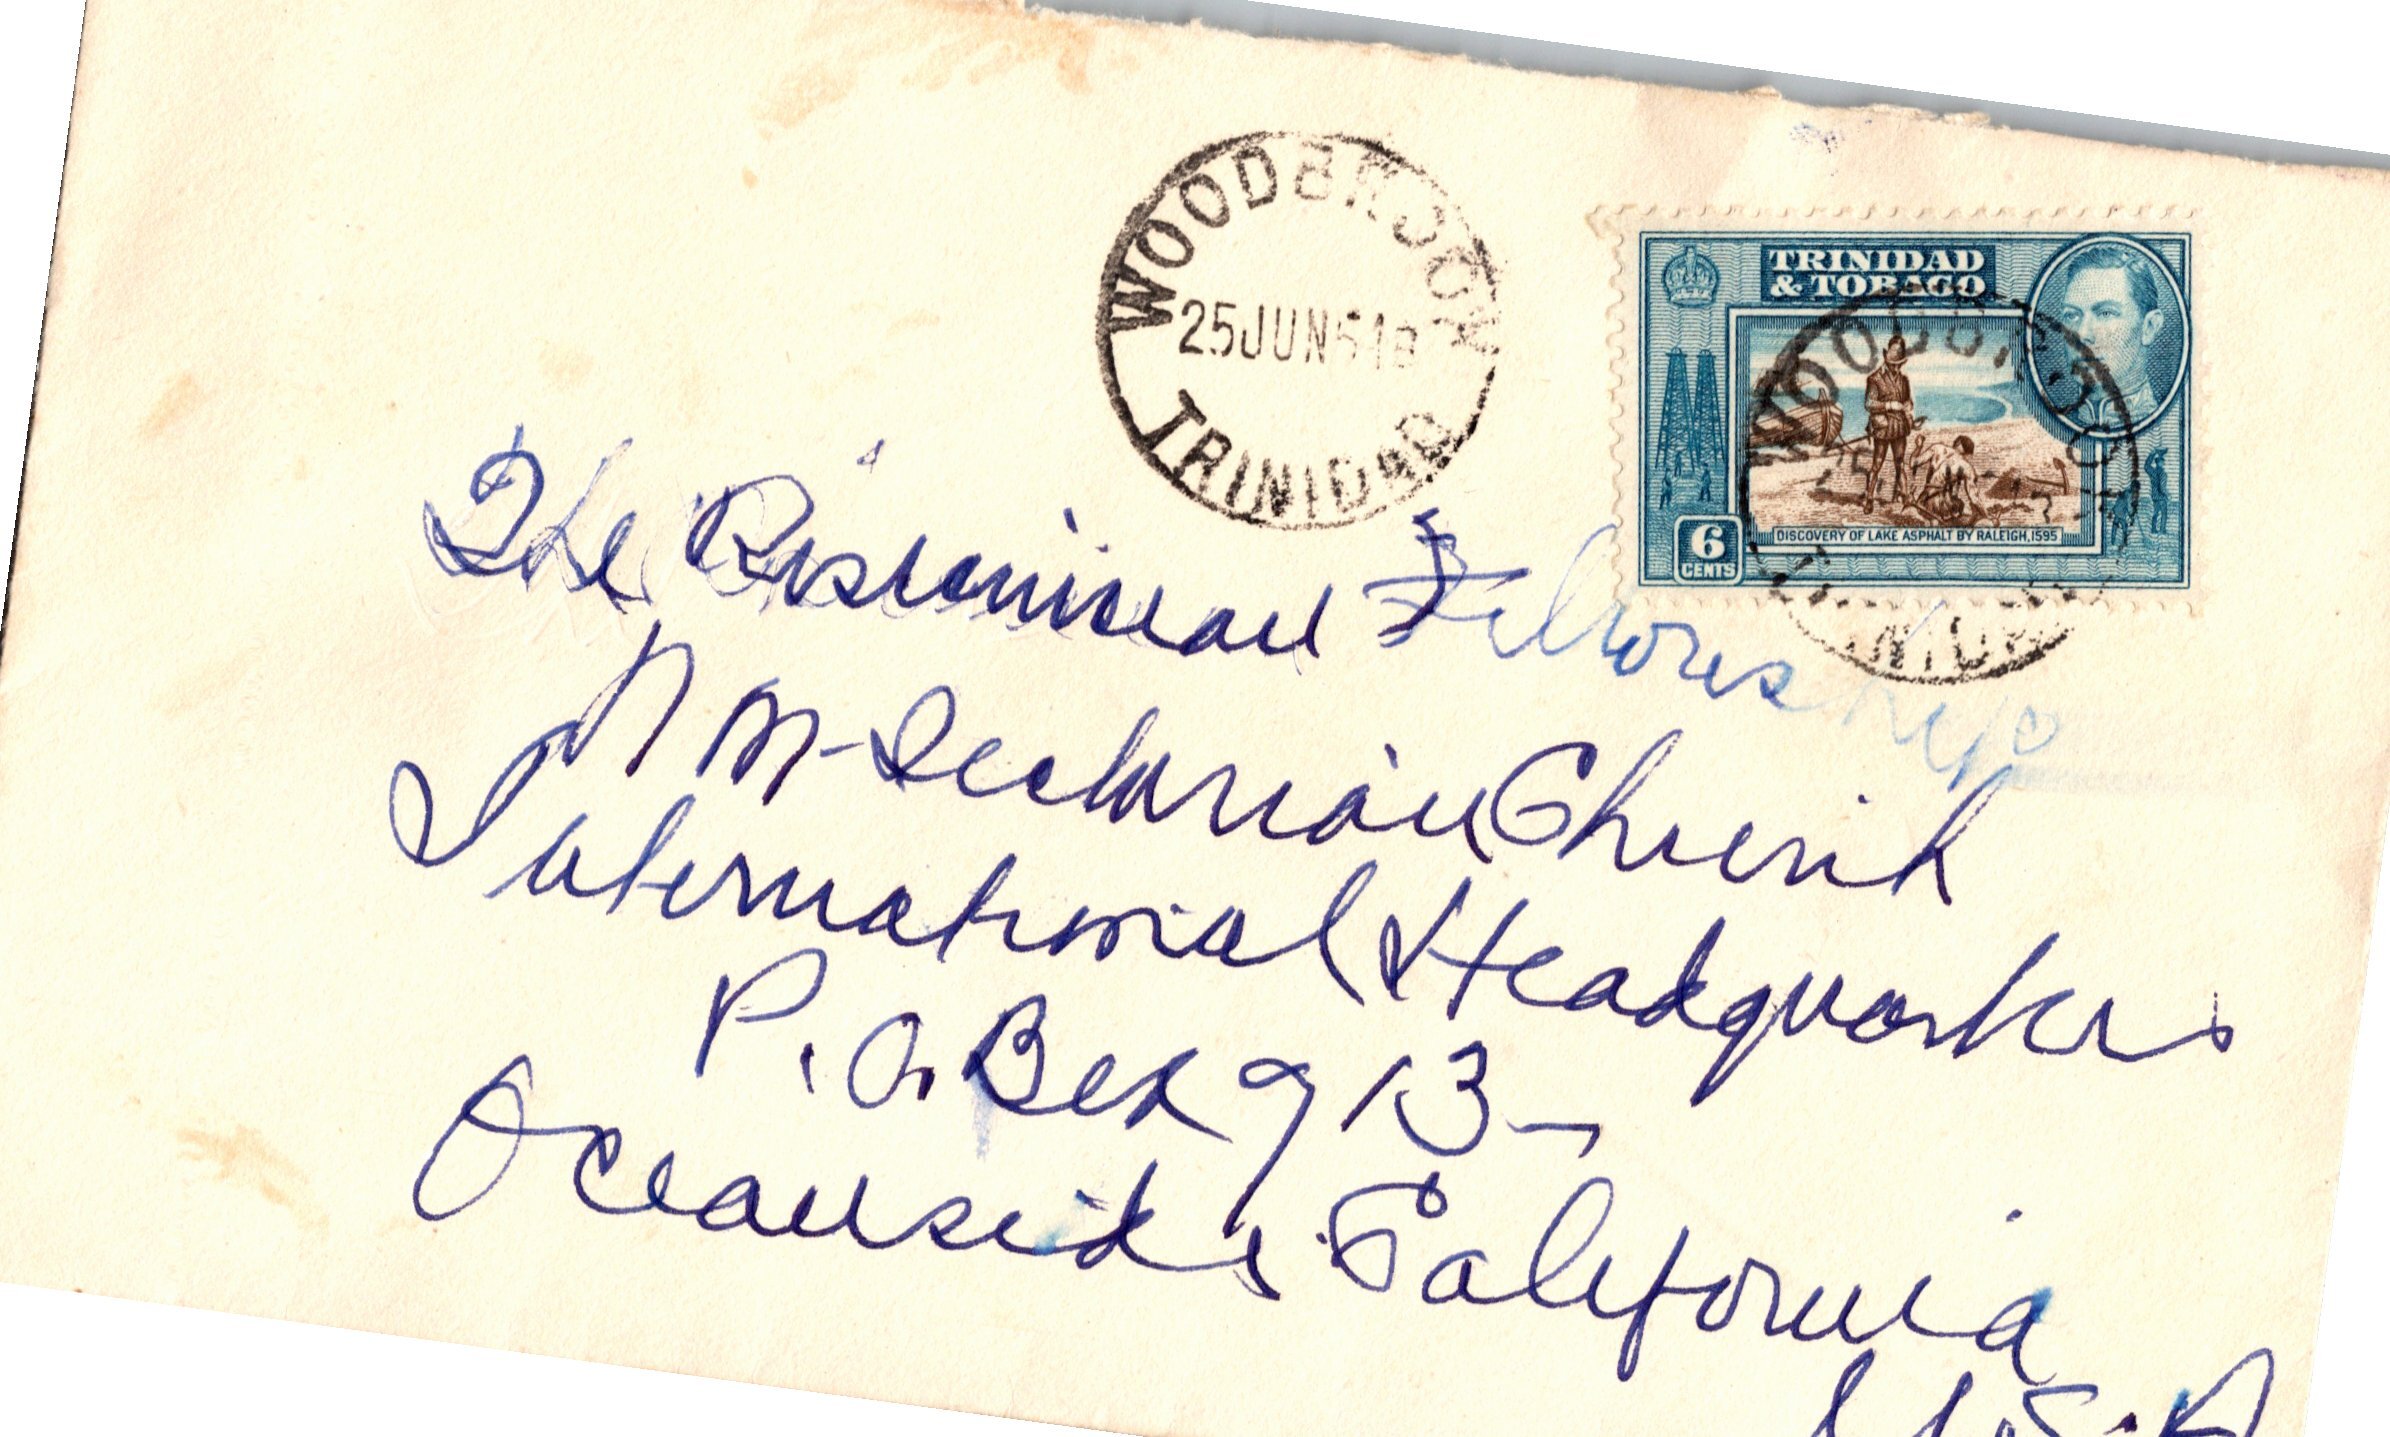 WOODBROOK
25JUN51
TRINIDAD
TRINIDAD
& TOBAGO
DISCOVERY OF LAKE ASPHALT BY RALEIGH, 1595
6
CENTS
WOODBROOK
TRINIDAD
The Rosicrucian Fellowship
Non-Sectarian Church
International Headquarters
P.O. Box 913-
Oceanside California
U.S.A